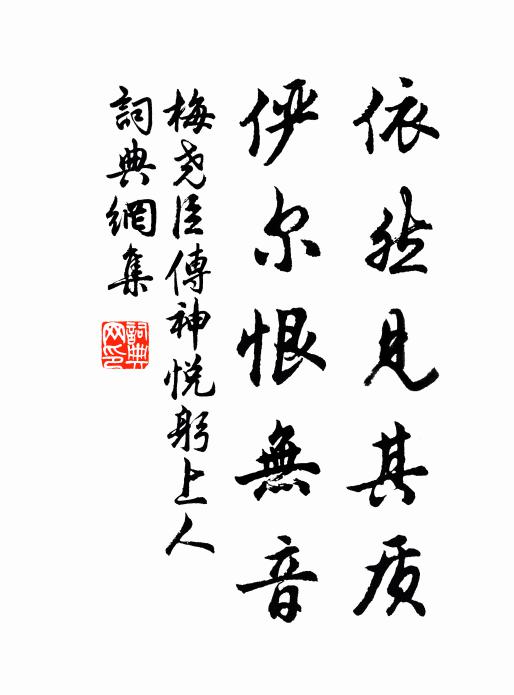 依然见其质
俨尔恨無音
梅尧臣傳神悦躬上人
詞典網集
詞典網印